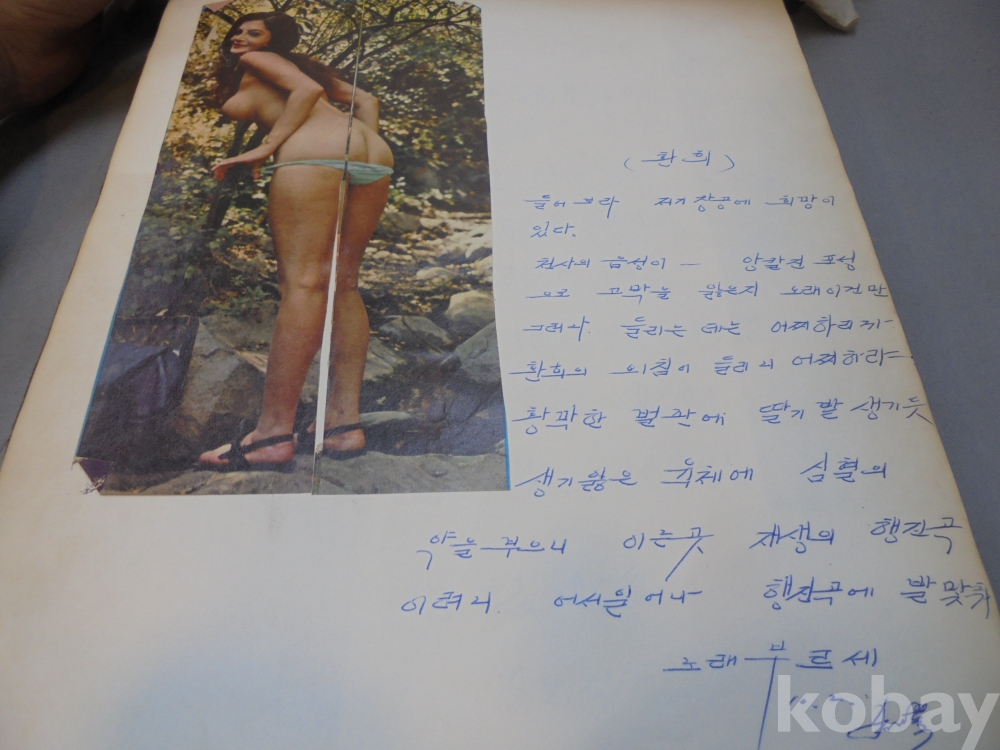 (환희)
들어 보라 저기 창공에 희망이
있다.
천사의 음성이 — 앙칼진 포성
으로 고막을 잃은지 노래이건만
그러나 들리는 데는 어쩌하리까
환희의 외침이 들리니 어쩌하랴
황막한 벌판에 딸기발 생기듯
생기잃은 육체에 심혈의
약을 부으니 이른곳 재생의 행진곡
이려니 어서일어나 행진곡에 발맞춰
노래 부르세
kobay